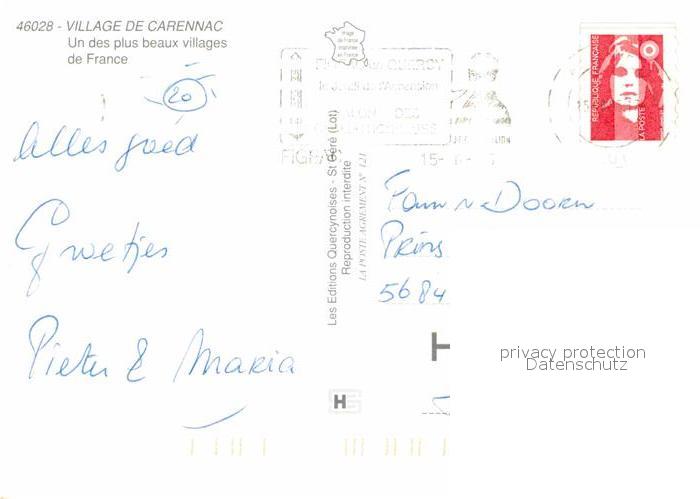 46028 - VILLAGE DE CARENNAC
Un des plus beaux villages
de France
20
Alles goed
Groetjes
Pieter & Maria
Les Editions Quercynoises - St Céré (Lot)
Reproduction interdite
LA POSTE AGREMENT N° 121
H
REPUBLIQUE FRANÇAISE
LA POSTE
le Jeudi de l'Ascension
FIGEAC
15-6-
Fam v Doorn
Prins
5684
privacy protection
Datenschutz